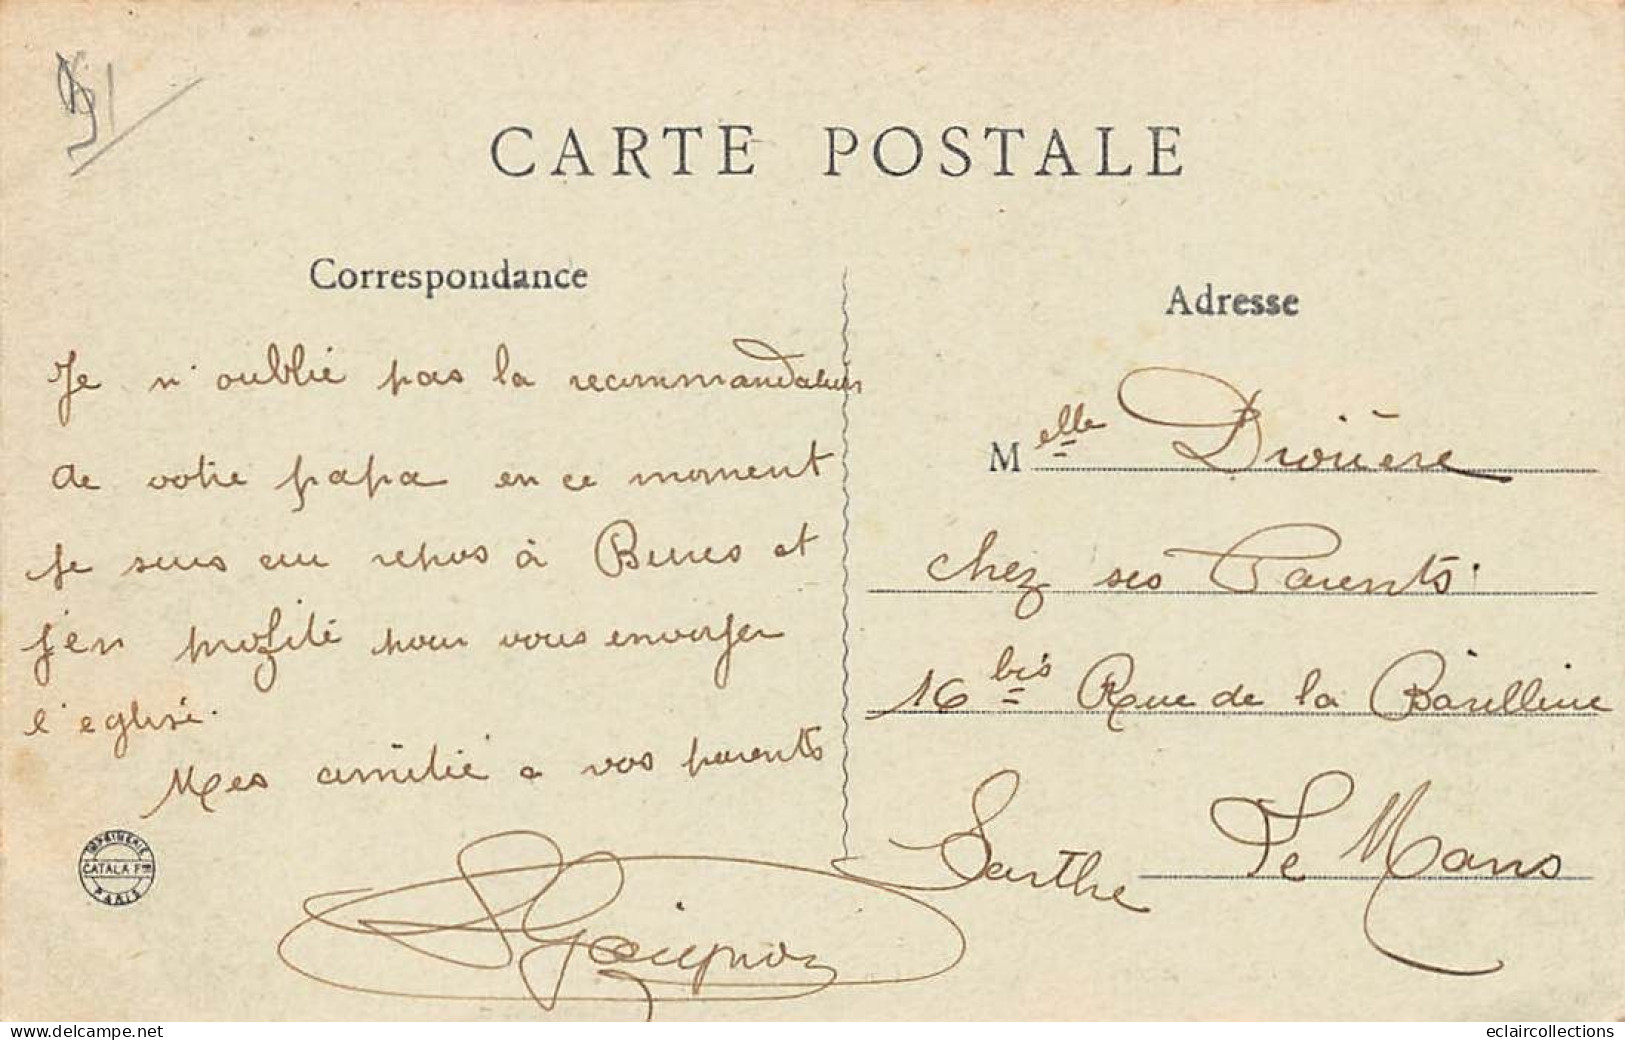 CARTE POSTALE
Correspondance
Je n'oublie pas la recommandation
de votre papa en ce moment
je suis au repos à Bures et
j'en profite pour vous envoyer
l'eglise.
Mes amitié a vos parents
Adresse
Melle Drouère
chez ses Parents.
16 bis Rue de la
Sarthe Le Mans
IMPRIMERIE
CATALA Frs
PARIS
www.delcampe.net
eclaircollections